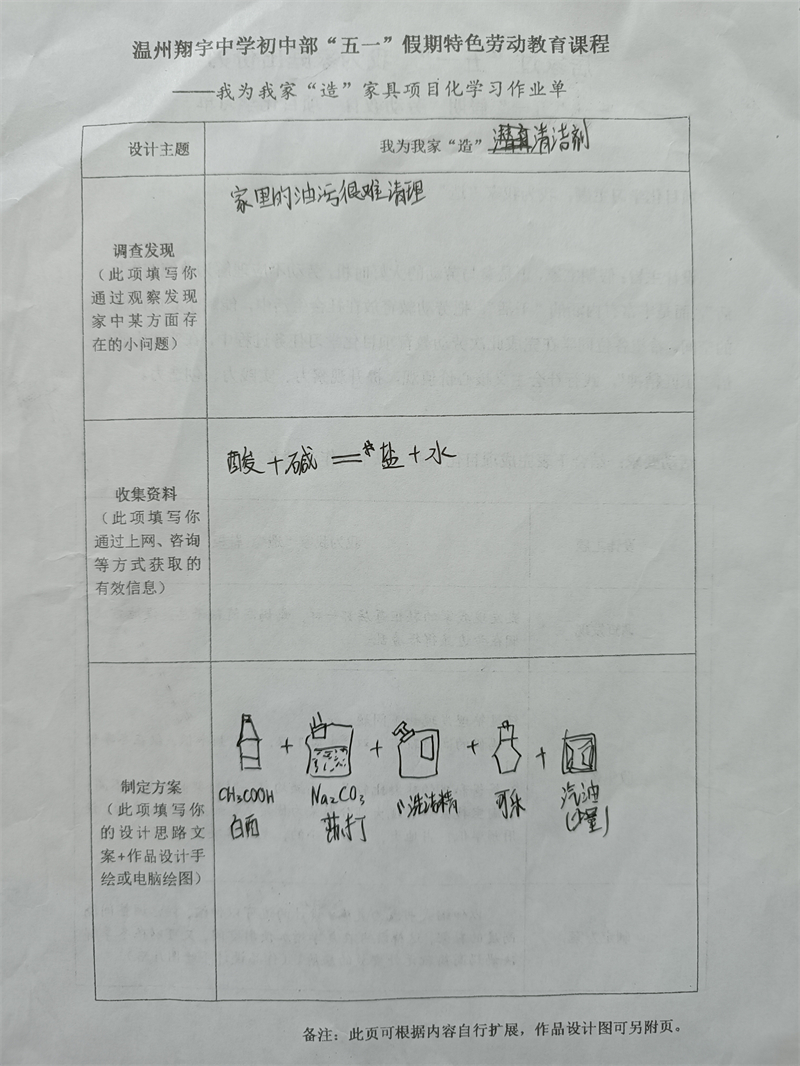 温州翔宇中学初中部“五一”假期特色劳动教育课程
——我为我家“造”家具项目化学习作业单
设计主题
我为我家“造”清洁剂
调查发现
（此项填写你
通过观察发现
家中某方面存
在的小问题）
家里的油污很难清理
收集资料
（此项填写你
通过上网、咨询
等方式获取的
有效信息）
酸+碱==盐+水
制定方案
（此项填写你
的设计思路文
案+作品设计手
绘或电脑绘图）
+ + + +
CH₃COOH Na₂CO₃ 洗洁精 可乐 汽油
白醋 苏打 (少量)
备注：此页可根据内容自行扩展，作品设计图可另附页。